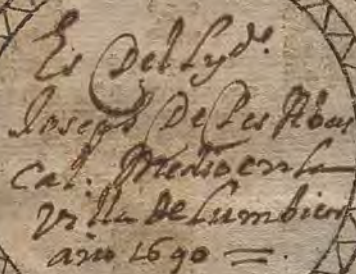 Es Del Lydo.
Joseph De Pes Abas
cal. Medico en la
villa de Lumbier
año 1690 =.